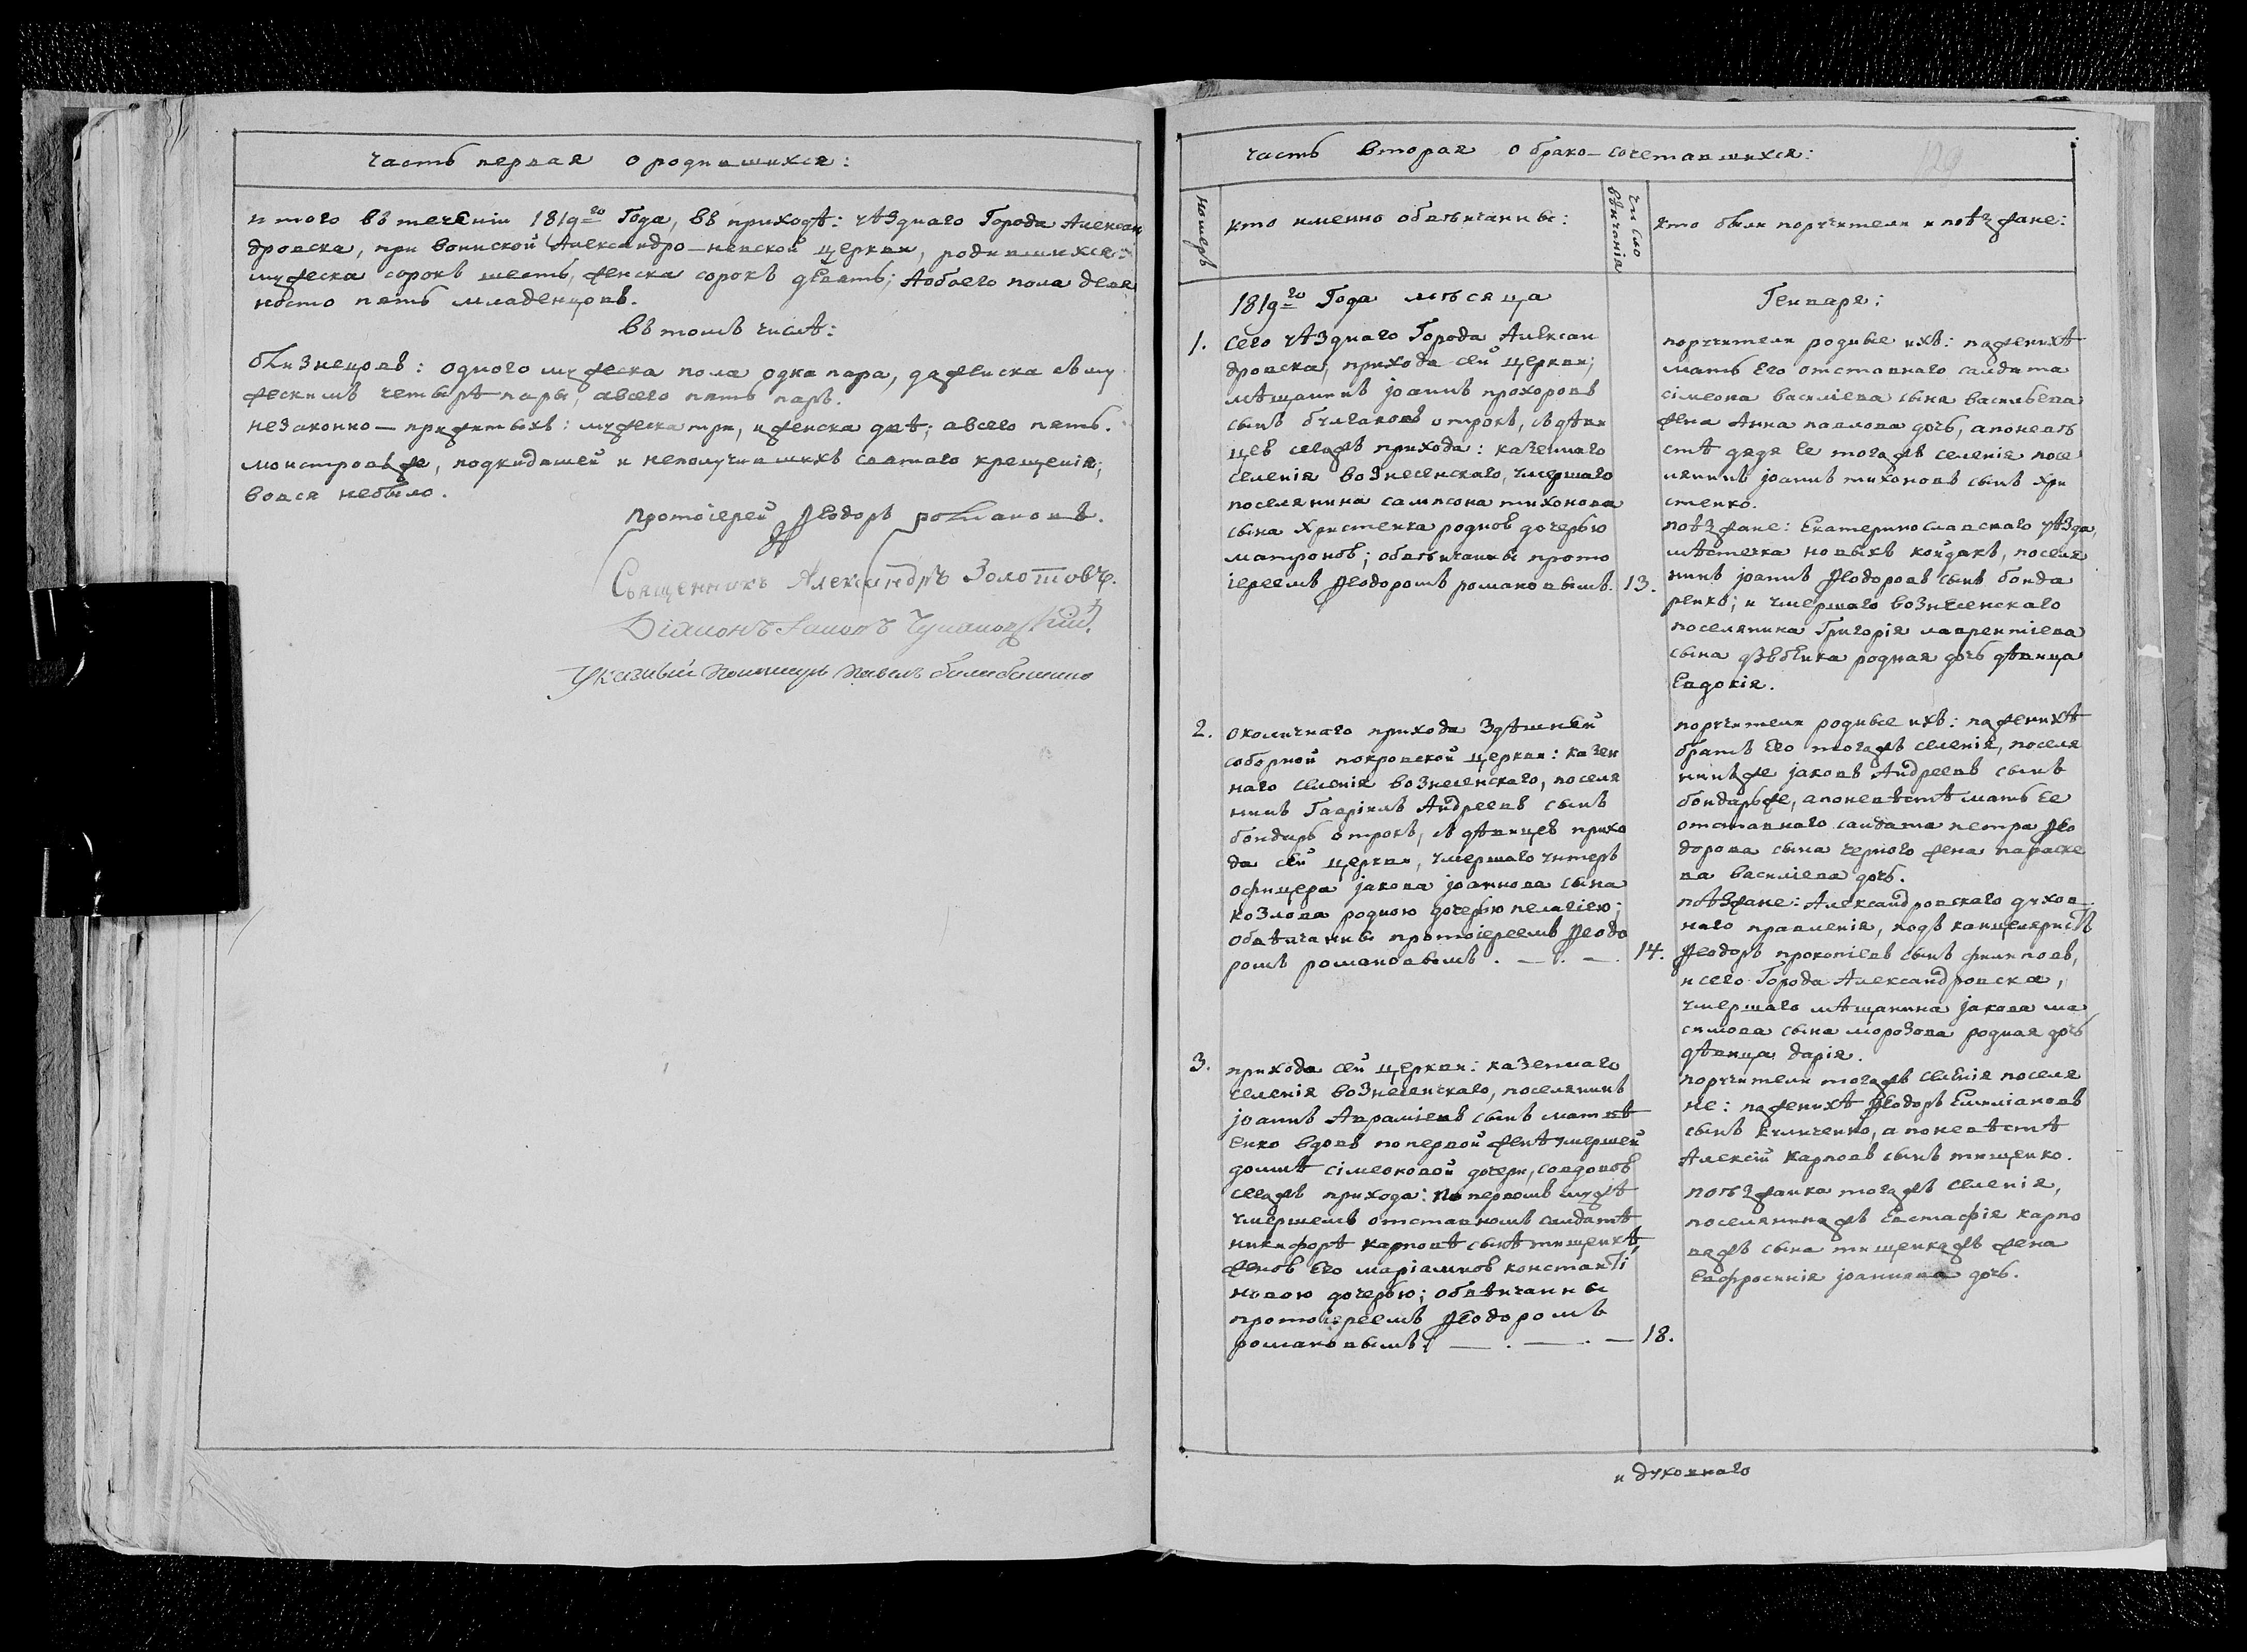 часть первая о родившихся:
итого въ теченіи 1819го Года, въ приходѣ: уѣзднаго Города Алексан
дровска, при воинской Александро-невской церкви, родившихся:
мужеска сорокъ шесть, женска сорокъ девять; Аобоего пола девя
носто пять младенцовъ.
въ томъ числѣ:
близнецовъ: одного мужеска пола одна пара, да женска съ му
жескимъ четырѣ пары, авсего пять паръ.
незаконно-прижитыхъ: мужеска три, и женска двѣ; авсего пять.
монстровъ же, подкидышей и неполучившихъ святаго крещенія;
вовся небыло.
протоіерей Ѳеодоръ романовъ.
Священникъ Александръ Золотовъ.
Діаконъ
Указный Пономарь Павелъ
часть вторая о брако-сочетавшихся:
129
номеръ
кто именно обвѣнчаны:
число вѣнчанія
кто были поручители и поѣзжане:
1819го Года мѣсяца
Генваря:
1. сего уѣзднаго Города Алексан
дровска, прихода сей церкви;
мѣщанинъ іоаннъ прохоровъ
сынъ булгаковъ отрокъ, съ дѣви
цею сегожъ прихода: казеннаго
селенія вознесенскаго, умершаго
поселянина сампсона тихонова
сына христенка родною дочерью
матроною; обвѣнчаны прото
іереемъ Ѳеодоромъ романовымъ. 13.
поручители родные ихъ: пожениxѣ
мать Его отставнаго салдата
сімеона василіева сына васильева
жена Анна павлова дочь, а по невѣ
стѣ дядя Ее тогожъ селенія посе
лянинъ іоаннъ тихоновъ сынъ хри
стенко.
поѣзжане: Екатеринославскаго уѣзда,
мѣстечка новыхъ койдакъ, поселя
нинъ іоаннъ Ѳеодоровъ сынъ бонда
ренко; и умершаго вознесенскаго
поселянина Григорія лаврентіева
сына дзюблика родная дочь дѣвица
Евдокія.
2. околичнаго прихода здѣшней
соборной покровской церкви: казен
наго селенія вознесенскаго, поселя
нинъ Гавріилъ Андреевъ сынъ
бондарь отрокъ, съ дѣвицею прихо
да сей церкви, умершаго унтеръ
офицера іакова іоаннова сына
козлова родною дочерью пелагіею;
обвѣнчаны протоіереемъ Ѳеодо
ромъ романовымъ. — . — . 14.
поручители родные ихъ: поженихѣ
братъ Его тогожъ селенія, поселя
нинъ же іаковъ Андреевъ сынъ
бондарь же, а поневѣстѣ мать Ее
отставнаго салдата петра Ѳео
дорова сына черного жена параске
ва василіева дочь.
поѣзжане: Александровскаго духов
наго правленія, подъ канцеляристъ
Ѳеодоръ прокопіевъ сынъ филиповъ,
и сего Города Александровска,
умершаго мѣщанина іакова ма
симова сына морозова родная дочь
дѣвица дарія.
3. прихода сей церкви: казеннаго
селенія вознесенскаго, поселянинъ
іоаннъ Авраміевъ сынъ матвѣ
енко вдовъ по первой женѣ умершей
домнѣ сімеоновой дочери, со вдовою
сегожъ прихода: по первомъ мужѣ
умершемъ отставномъ салдатѣ
никифорѣ карповѣ сынѣ тищенкѣ,
женою Его маріамною константі
новою дочерью; обвѣнчаны
протоіереемъ Ѳеодоромъ
романовымъ. — . — . — 18.
поручители тогожъ селенія поселя
не: поженихѣ Ѳеодоръ Емиліановъ
сынъ куличенко, а по невѣстѣ
Алексій карповъ сынъ тищенко.
поѣзжанка тогожъ селенія,
поселянинажъ Евстафія карпо
важъ сына тищенкажъ жена
Евфросинія іоаннова дочь.
и духовнаго